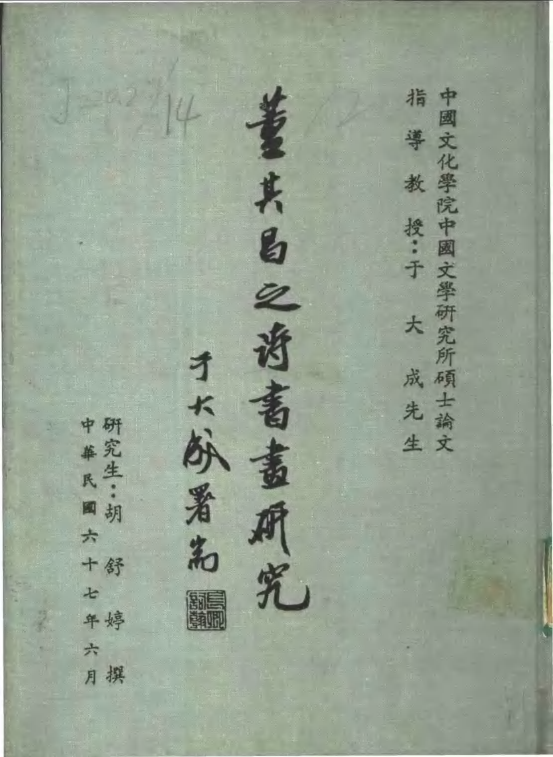 中國文化學院中國文學研究所碩士論文
指導教授：于大成先生
董其昌之詩書畫研究
于大成署耑
研究生：胡舒婷撰
中華民國六十七年六月
14